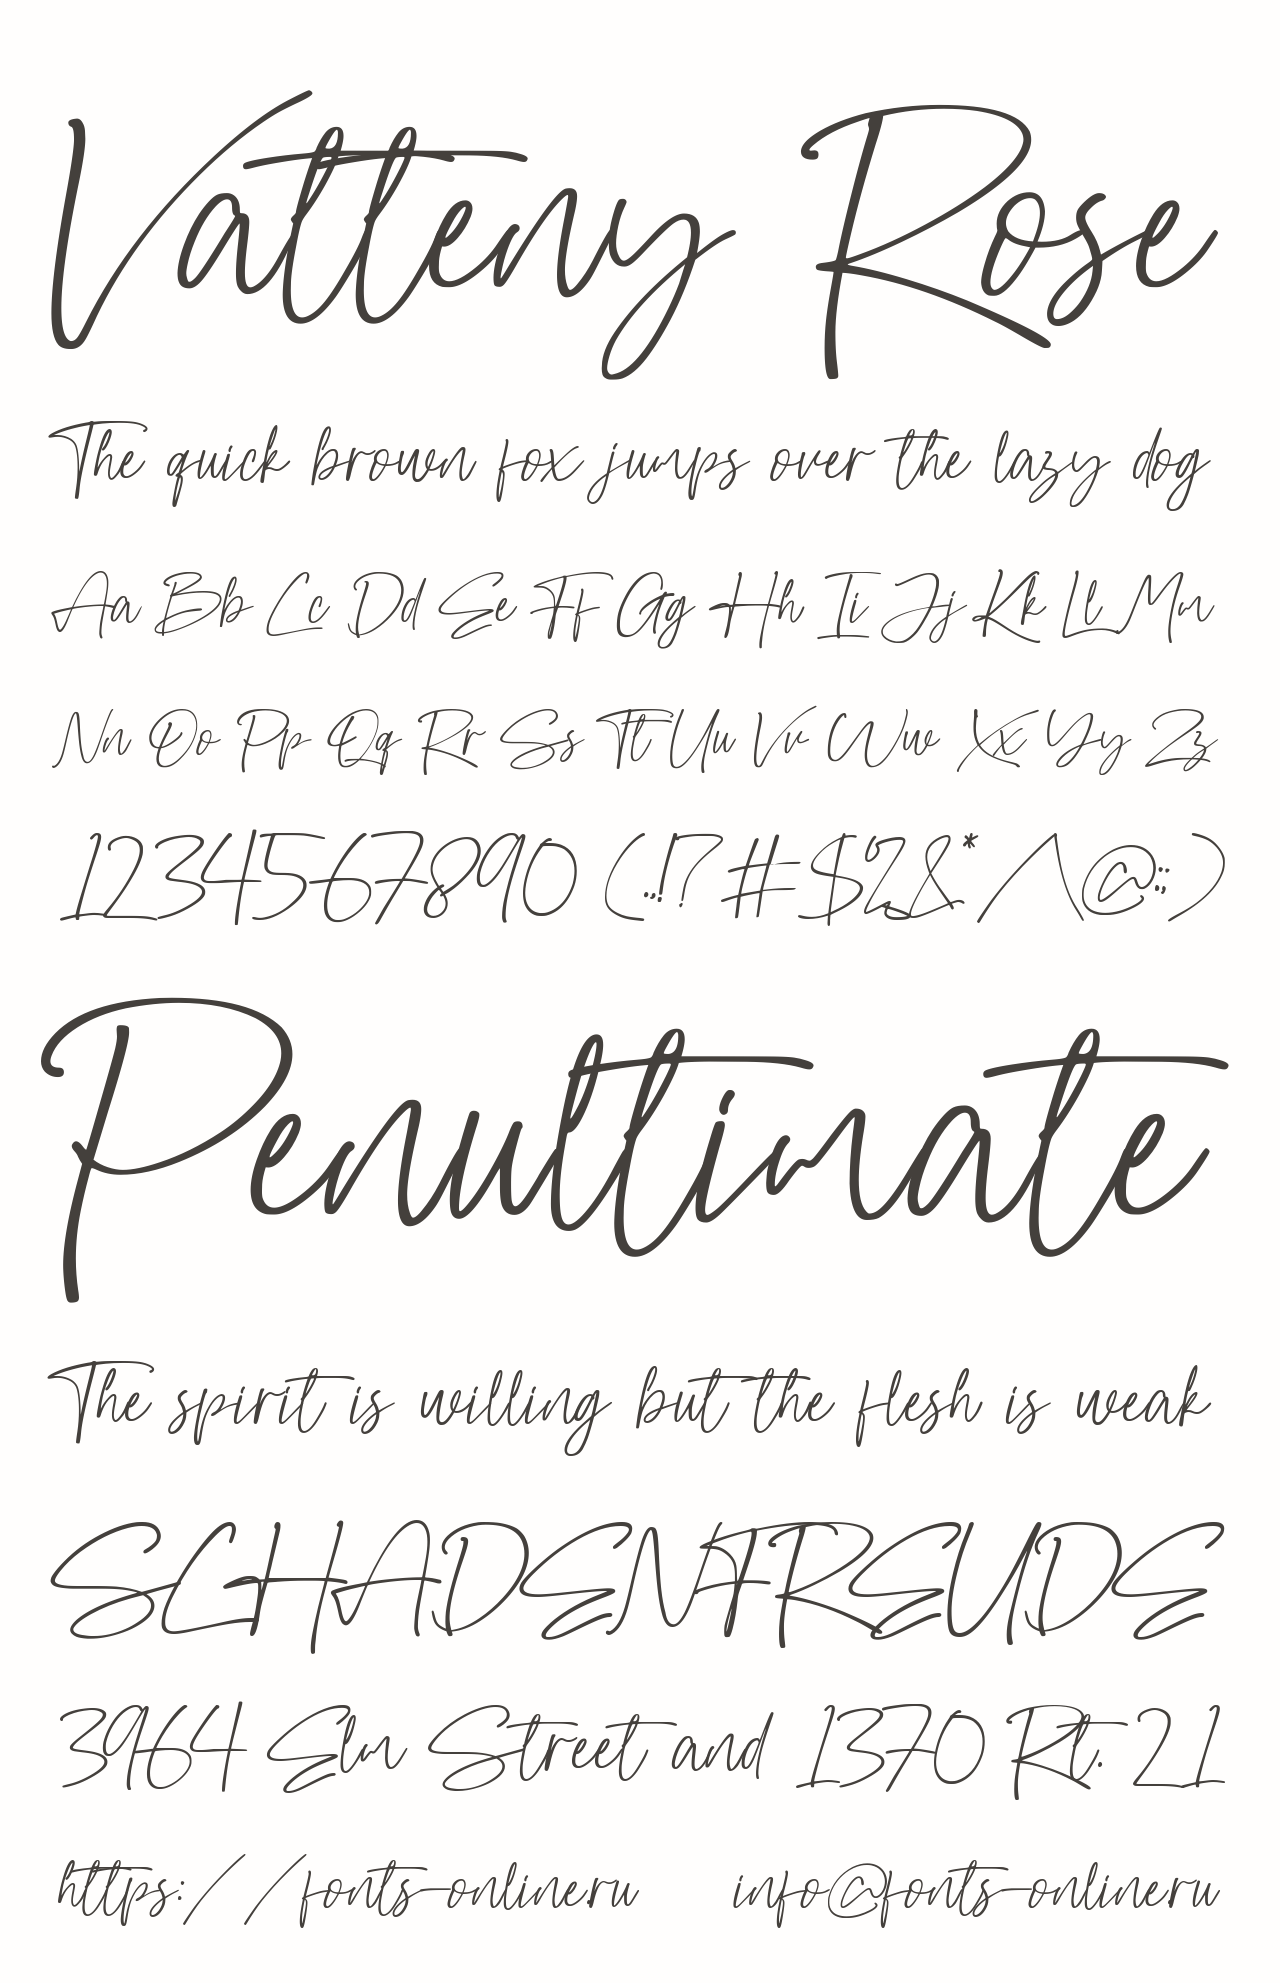 Vatteny Rose
The quick brown fox jumps over the lazy dog
Aa Bb Cc Dd Ee Ff Gg Hh Ii Jj Kk Ll Mm
Nn Oo Pp Qq Rr Ss Tt Uu Vv Ww Xx Yy Zz
1234567890 (.,!? #$%&* /\@:;)
Penultimate
The spirit is willing but the flesh is weak
SCHADENFREUDE
3964 Elm Street and 1370 Rt. 21
https://fonts-online.ru info@fonts-online.ru